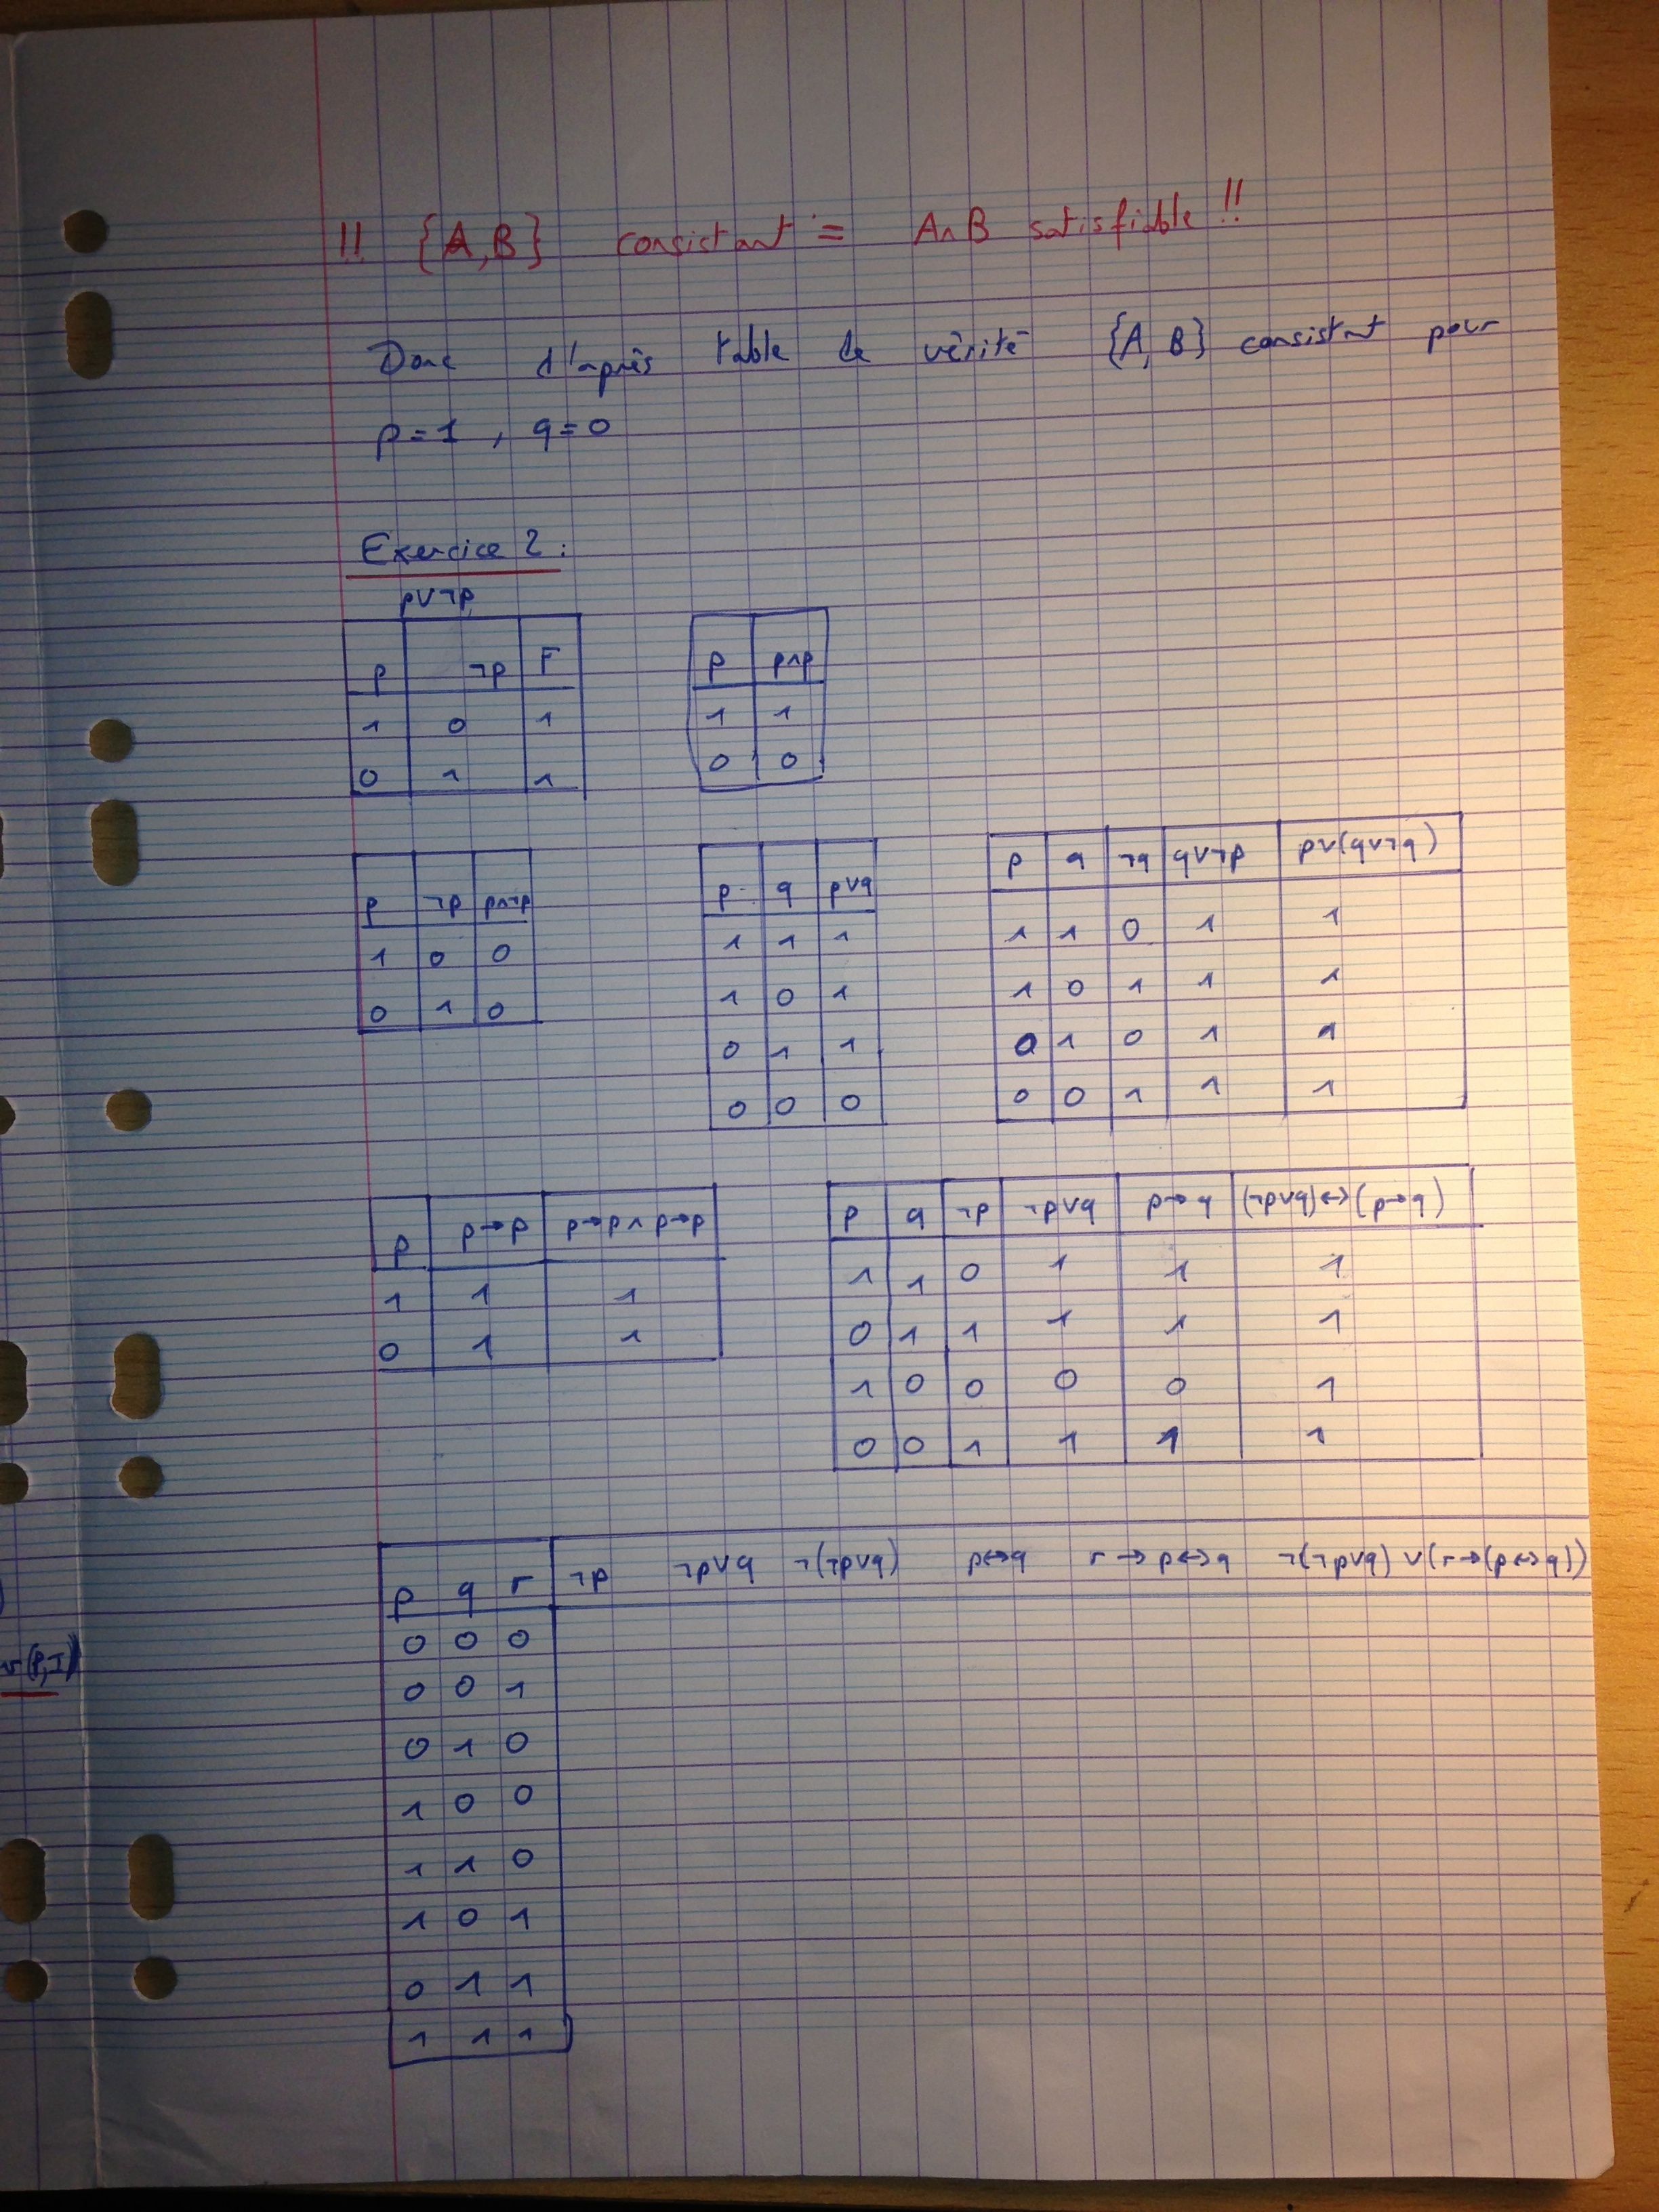 !! {A,B} consistant = A∧B satisfiable !!
Donc d'après table de vérité {A,B} consistant pour
p=1 , q=0
Exercice 2 :
p∨¬p
p ¬p F
1 0 1
0 1 1
p p∧p
1 1
0 0
p ¬p p∧¬p
1 0 0
0 1 0
p q p∨q
1 1 1
1 0 1
0 1 1
0 0 0
p q ¬q q∨¬p p∨(q∨¬q)
1 1 0 1 1
1 0 1 1 1
0 1 0 1 1
0 0 1 1 1
p p→p p→p ∧ p→p
1 1 1
0 1 1
p q ¬p ¬p∨q p→q (¬p∨q)↔(p→q)
1 1 0 1 1 1
0 1 1 1 1 1
1 0 0 0 0 1
0 0 1 1 1 1
p q r ¬p ¬p∨q ¬(¬p∨q) p↔q r→p↔q ¬(¬p∨q)∨(r→(p↔q))
0 0 0
0 0 1
0 1 0
1 0 0
1 1 0
1 0 1
0 1 1
1 1 1